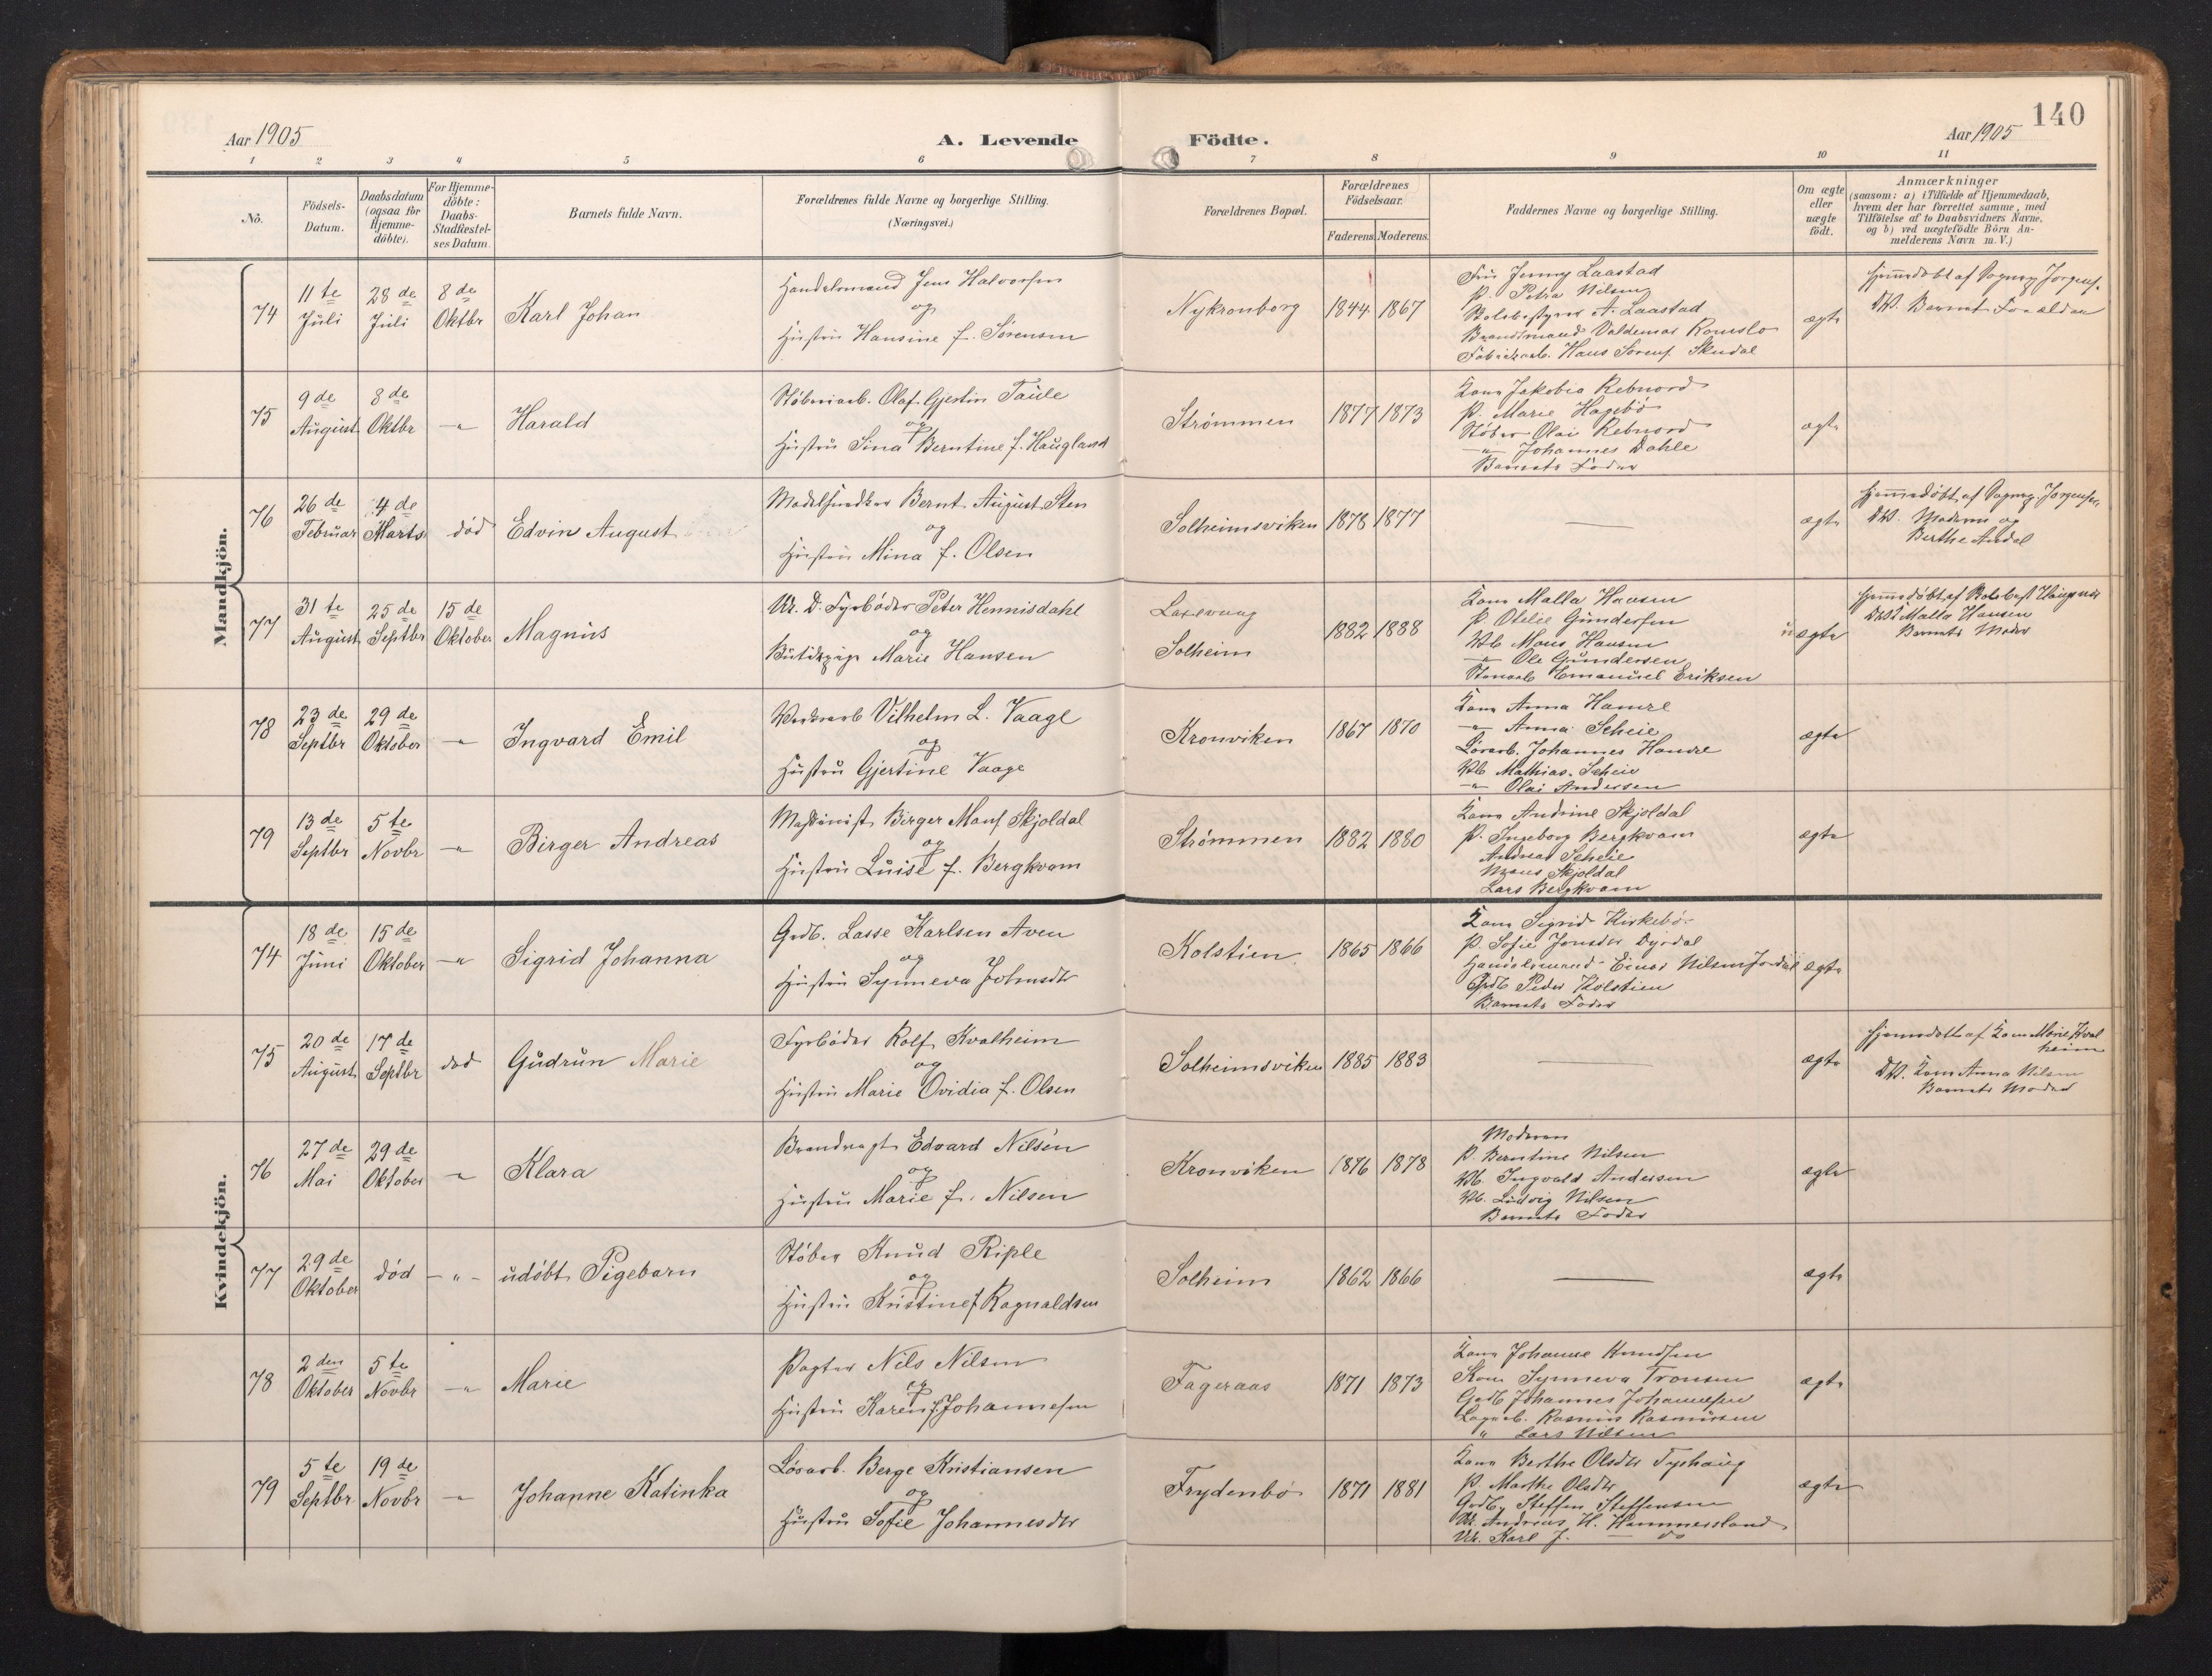 140
Aar 1905
A. Levende Födte.
Aar 1905
1 2 3 4 5 6 7 8 9 10 11
Nö.
Födsels-
Datum.
Daabsdatum
(ogsaa för
Hjemme-
döbte).
For Hjemme-
döbte:
Daabs-
Stadfæstel-
ses Datum.
Barnets fulde Navn.
Forældrenes fulde Navne og borgerlige Stilling.
(Næringsvei.)
Forældrenes Bopæl.
Forældrenes
Födselsaar.
Faderens. Moderens.
Faddernes Navne og borgerlige Stilling.
Om ægte
eller
uægte
födt.
Anmærkninger
(saasom: a) i Tilfælde af Hjemmedaab,
hvem der har forrettet samme, med
Tilföielse af to Daabsvidners Navne,
og b) ved uægtefödte Börn An-
melderens Navn m. V.)
Mandkjön.
74
11te
Juli
28de
Juli
8de
Oktbr
Karl Johan
Handelsmand Jens Halvorsen
og
Hustru Hansine f. Sørensen
Nykronborg
1844 1867
Fru Jenny Laastad
P. Petra Nilsen
A. Laastad
Brandsmand Valdemar Romslo
Fabrikarb. Hans Sorens. Skudal
ægte
Hjemmedøbt af Sogneprg Jorgens.
DV. Barnets Forældre
75
9de
August
8de
Oktbr
-"-
Harald
Støberiarb. Olaf Gjertin Taule
og
Hustru Sina Berntine f. Haugland
Strømmen
1877 1873
Kone Jakobia Rebnord
P. Marie Hagebø
Støber Olai Rebnord
-"- Johannes Dahle
Barnets Fader
ægte
76
26de
Februar
4de
Marts
død
Edvin August
Modelsnedker Bernt August Sten
og
Hustru Mina f. Olsen
Solheimsviken
1878 1877
ægte
Hjemmedøbt af Sogneprg. Jorgensen
DV. Moderen og
Berthe Andal
77
31te
August
25de
Septbr
15de
Oktober
Magnus
Ur. D. Fyrbøder Peter Hennisdahl
og
Butikspige Marie Hansen
Laxevaag
Solheim
1882 1888
Kone Malla Hansen
P. Otelie Gundersen
Vb Mons Hansen
-"- Ole Gundersen
Stenarb Emanuel Eriksen
uægte
Malla Hansen
Barnets Moder
78
23de
Septbr
29de
Oktober
-"-
Ingvard Emil
Værksarb Vilhelm L. Vaage
og
Hustru Gjertine Vaage
Kronviken
1867 1870
Kone Anna Hamre
-"- Anna Scheie
Løsarb. Johannes Hamre
Vb Mathias Scheie
-"- Olai Andersen
ægte
79
13de
Septbr
5te
Novbr
-"-
Birger Andreas
Maskinist Birger Mons Skjoldal
og
Hustru Luise f. Bergkvam
Strømmen
1882 1880
Kone Andrine Skjoldal
P. Ingeborg Bergkvam
Andreas Scheie
Mons Skjoldal
Lars Bergkvam
ægte
Kvindekjön.
74
18de
Juni
15de
Oktober
-"-
Sigrid Johanna
Grdb. Lasse Karlsen Aven
og
Hustru Synneva Johnsdtr
Kolstien
1865 1866
Kone Sigrid Kirkebø
P. Sofie Jonsdtr Dyrdal
Handelsmand Einar Nilsen Jordal
Grdb Peder Kolstien
Barnets Fader
ægte
75
20de
August
17de
Septbr
død
Gudrun Marie
Fyrbøder Rolf Kvalheim
og
Hustru Marie Ovidia f. Olsen
Solheimsviken
1885 1883
ægte
Hjemmedøbt af Kone Marie Kval
heim
DV. Kone Anna Nilsen
Barnets Moder
76
27de
Mai
29de
Oktober
-"-
Klara
Brandvagt Edvard Nilsen
og
Hustru Marie f. Nilsen
Kronviken
1876 1878
Moderen
P. Berntine Nilsen
Vb. Ingvald Andersen
Vb. Ludvig Nilsen
Barnets Fader
ægte
77
29de
Oktober
død
-"-
udøbt Pigebarn
Støber Knud Riple
og
Hustru Kristine f Ragnaldsen
Solheim
1862 1866
ægte
78
2den
Oktober
5te
Novbr
-"-
Marie
Pagter Nils Nilsen
og
Hustru Karen f. Johannesen
Fageraas
1871 1873
Kone Johanne Knudsen
Kone Synneva Tronsen
Grdb Johannes Johannessen
Lagerb. Rasmus Rasmussen
" Lars Nilsen
ægte
79
5te
Septbr
19de
Novbr
-"-
Johanne Katinka
Løsarb. Berge Kristiansen
og
Hustru Sofie Johannesdtr
Frydenbø
1871 1881
Kone Berthe Olsdtr Tyshaug
P. Marthe Olsdtr
Grdb. Steffen Steffensen
Uk. Andreas H. Hammersland
Uk. Karl J. — do
ægte